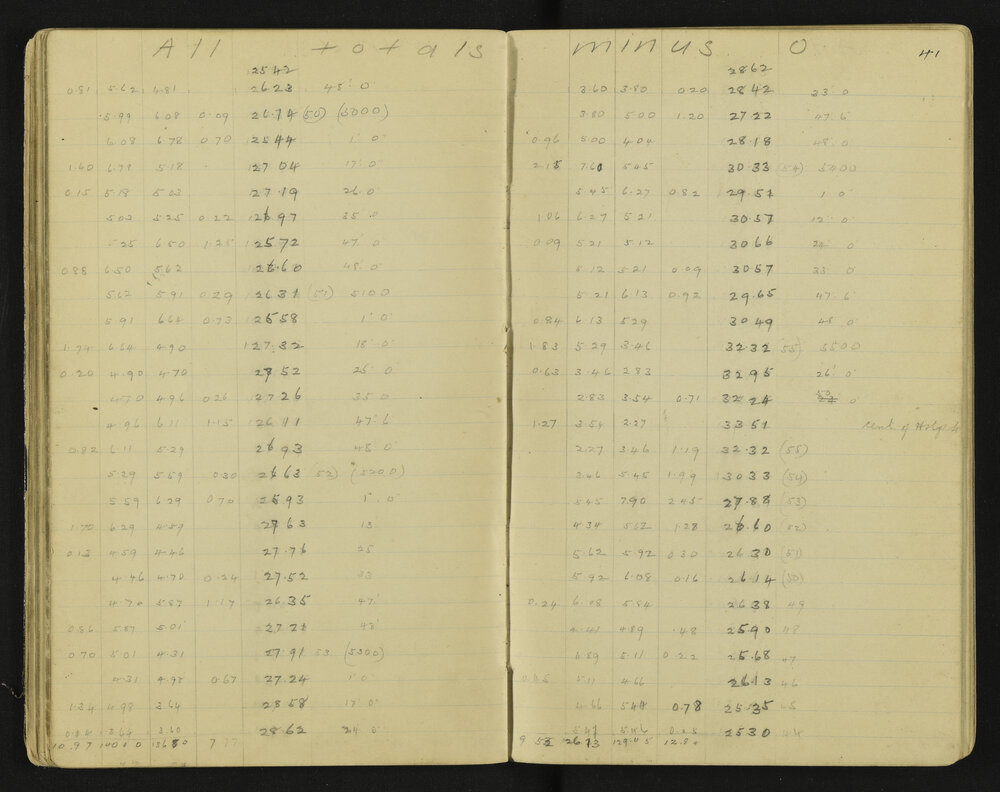 All totals minus 0
41
25.42
0.81 5.62 4.81 26.23 48' 0
5.99 6.08 0.09 26.14 (50) (5000)
6.08 6.78 0.70 25.44 1' 0
1.60 6.78 5.18 27.04 17' 0
0.15 5.18 5.03 27.19 26.0
5.03 5.25 0.22 26.97 35' 0
5.25 6.50 1.25 25.72 47' 0
0.88 6.50 5.62 26.60 48' 0
5.62 5.91 0.29 26.31 (51) 5100
5.91 6.64 0.73 25.58 1' 0
1.74 6.64 4.90 27.32 18' 0
0.20 4.90 4.70 27.52 25' 0
4.70 4.96 0.26 27.26 35 0
4.96 6.11 1.15 26.11 47' 6
0.82 6.11 5.29 26.93 48' 0
5.29 5.59 0.30 26.63 52) (5200)
5.59 6.29 0.70 25.93 1' 0
1.70 6.29 4.59 27.63 13
0.13 4.59 4.46 27.76 25
4.46 4.70 0.24 27.52 33
4.70 5.87 1.17 26.35 47'
0.86 5.87 5.01 27.21 48'
0.70 5.01 4.31 27.91 53 (5300)
4.31 4.98 0.67 27.24 1' 0
1.34 4.98 3.64 28.58 17' 0
0.04 3.64 3.60 28.62 24' 0
10.97
28.62
3.60 3.80 0.20 28.42 33' 0
3.80 5.00 1.20 27.22 47' 6
0.96 5.00 4.04 28.18 48' 0
2.15 7.60 5.45 30.33 (54) 5400
5.45 6.27 0.82 29.51 1 0
1.06 6.27 5.21 30.57 12' 0
0.09 5.21 5.12 30.66 24' 0
5.12 5.21 0.09 30.57 33' 0
5.21 6.13 0.92 29.65 47' 6
0.84 6.13 5.29 30.49 48' 0
1.83 5.29 3.46 32.32 (55) 5500
0.63 3.46 2.83 32.95 26' 0
2.83 3.54 0.71 32.24 0
1.27 3.54 2.27 33.51 cent of
2.27 3.46 1.19 32.32 (55)
3.46 5.45 1.99 30.33 (54)
5.45 7.90 2.45 27.88 (53)
4.34 5.62 1.28 26.60 (52)
5.62 5.92 0.30 26.30 (51)
5.92 6.08 0.16 26.14 (50)
0.24 6.08 5.84 26.38 49
4.41 4.89 .48 25.90 48
4.89 5.11 0.22 25.68 47
0.45 5.11 4.66 26.13 46
4.66 5.44 0.78 25.35 45
5.41 5.46 0.05 25.30 44
9.52 129.45 12.80